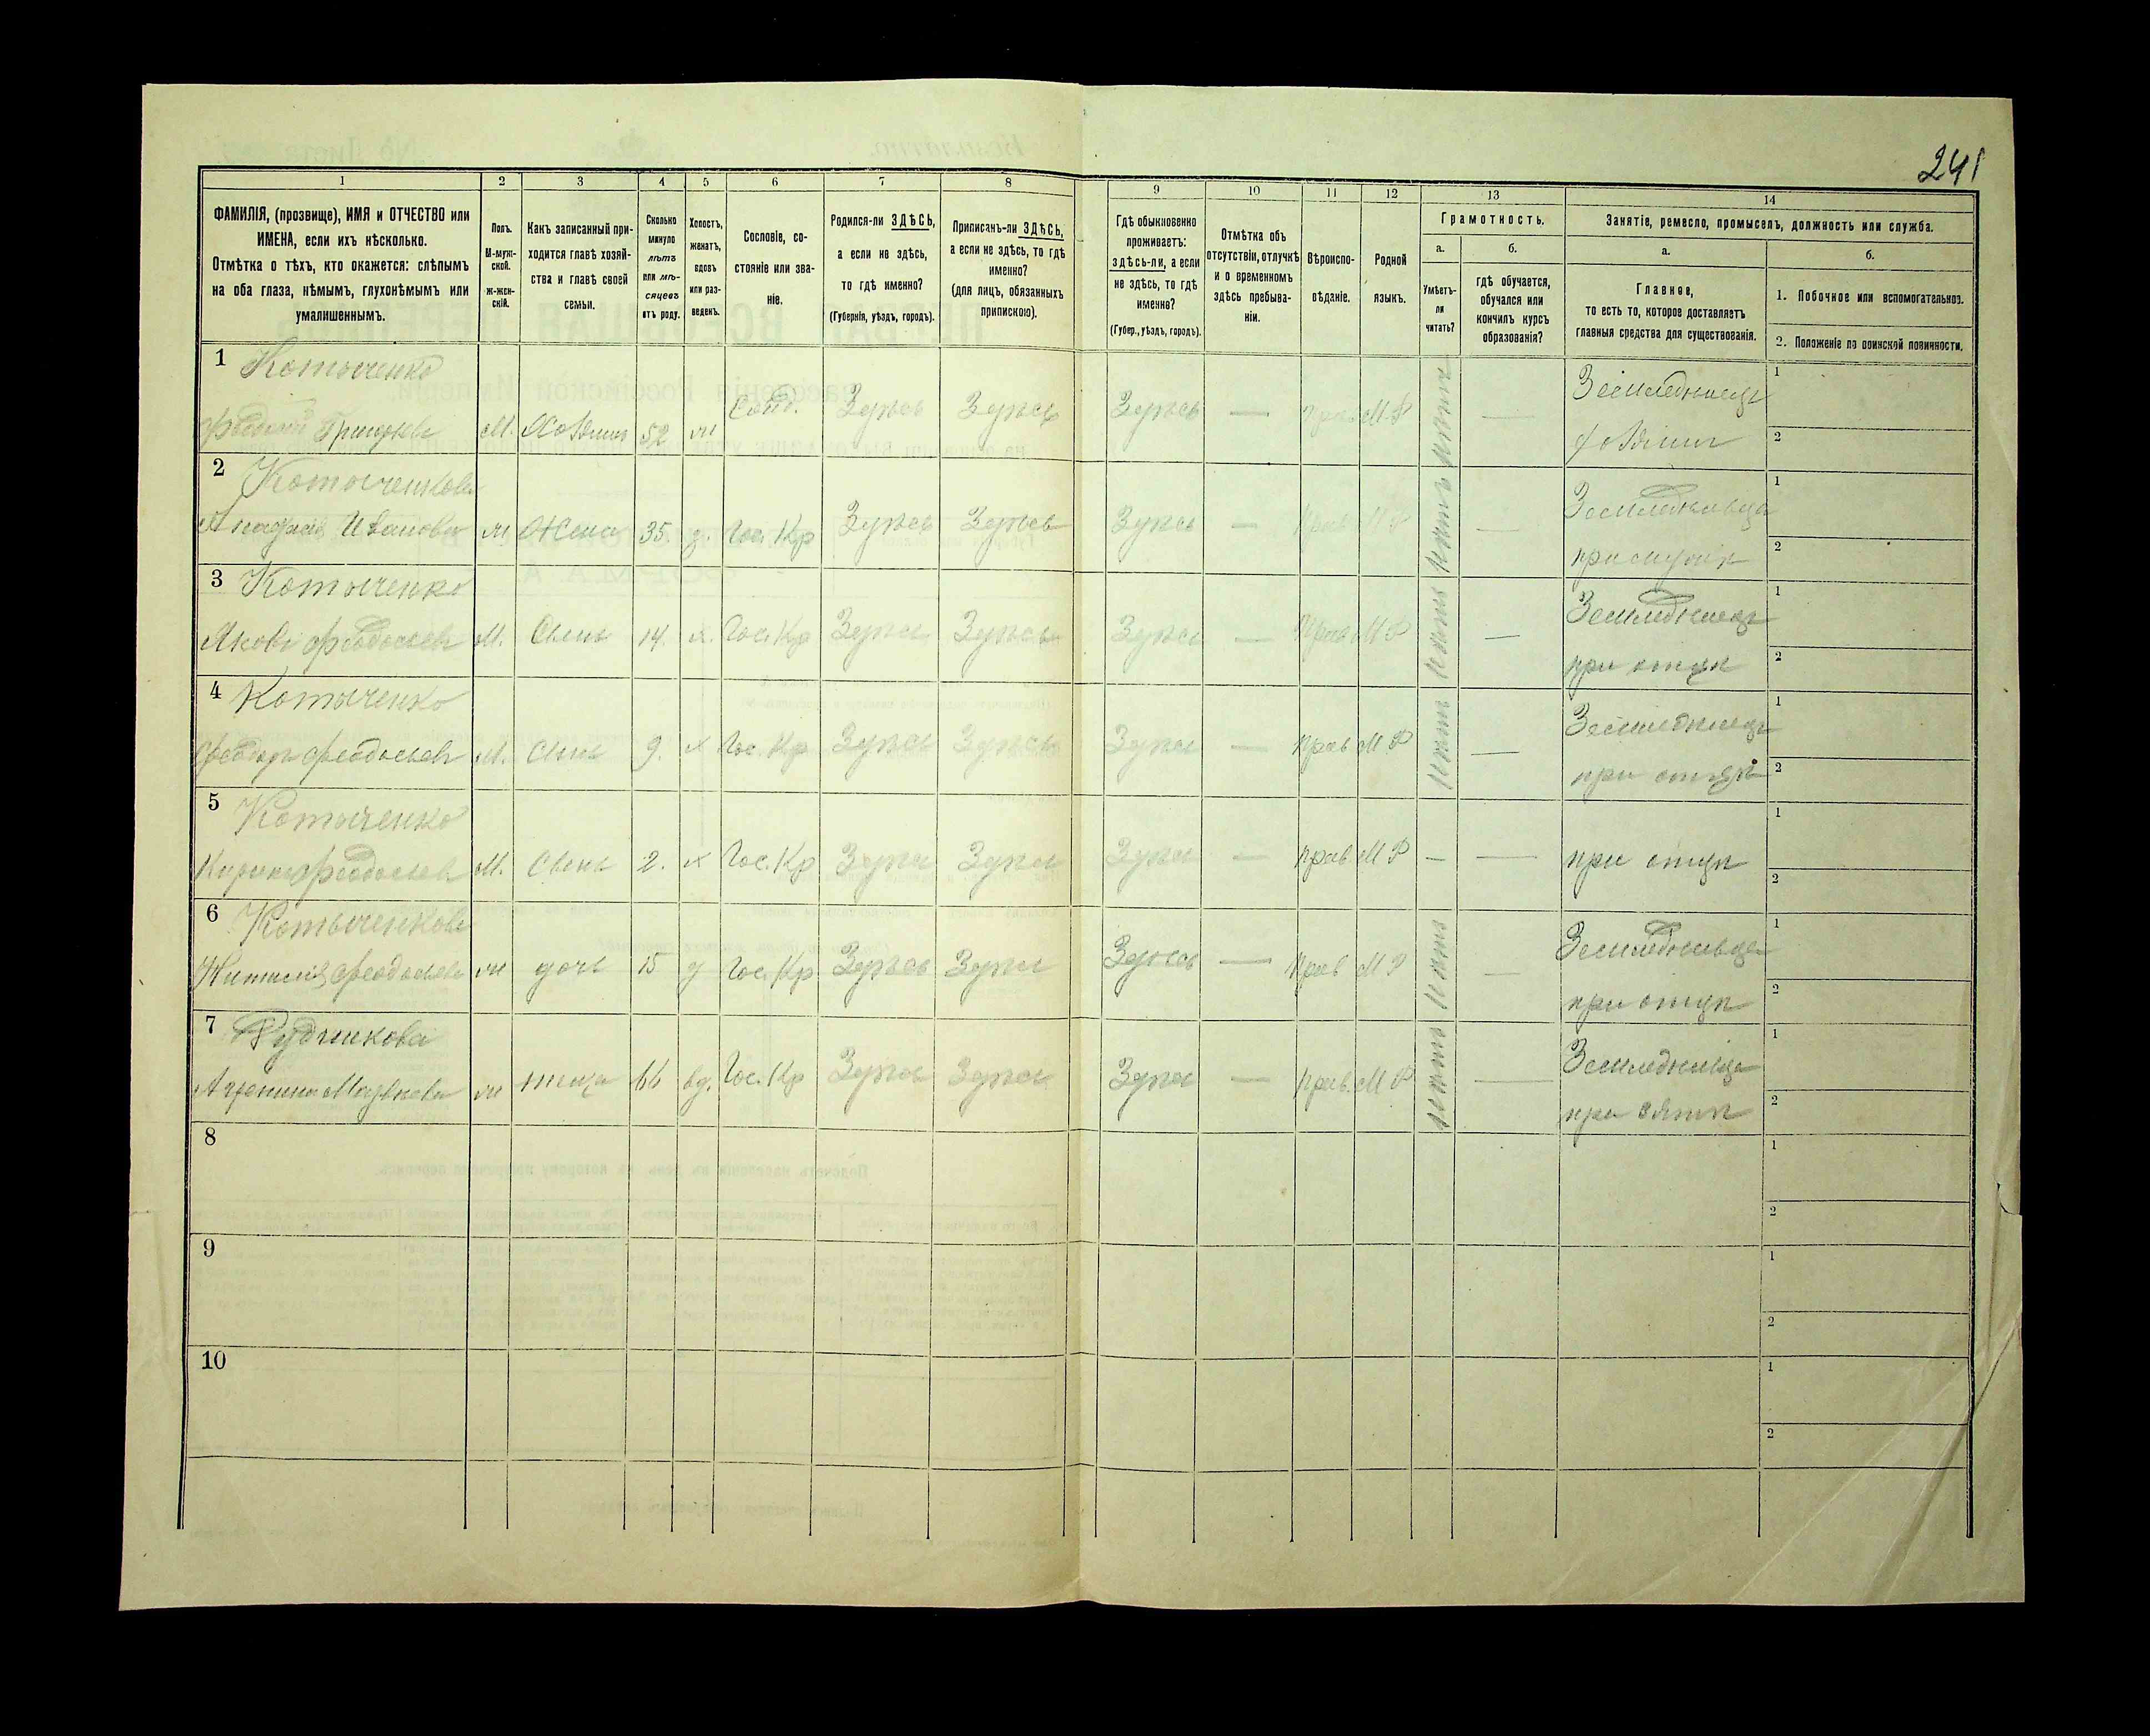 241
1 2 3 4 5 6 7 8 9 10 11 12 13 14
ФАМИЛІЯ, (прозвище), ИМЯ и ОТЧЕСТВО или
ИМЕНА, если ихъ нѣсколько.
Отмѣтка о тѣхъ, кто окажется: слѣпымъ
на оба глаза, нѣмымъ, глухонѣмымъ или
умалишеннымъ.
Полъ.
М-муж-
ской.
Ж-жен-
скій.
Какъ записанный при-
ходится главѣ хозяй-
ства и главѣ своей
семьи.
Сколько
минуло
лѣтъ
или мѣ-
сяцевъ
отъ роду.
Холостъ,
женатъ,
вдовъ
или раз-
веденъ.
Сословіе, со-
стояніе или зва-
ніе.
Родился-ли ЗДѢСЬ,
а если не здѣсь,
то гдѣ именно?
(Губернія, уѣздъ, городъ).
Приписанъ-ли ЗДѢСЬ,
а если не здѣсь, то гдѣ
именно?
(для лицъ, обязанныхъ
припискою).
Гдѣ обыкновенно
проживаетъ:
здѣсь-ли, а если
не здѣсь, то гдѣ
именно?
(Губер., уѣздъ, городъ).
Отмѣтка объ
отсутствіи, отлучкѣ
и о временномъ
здѣсь пребыва-
ніи.
Вѣроиспо-
вѣданіе.
Родной
языкъ.
Грамотность.
а. б.
Умѣетъ-
ли
читать?
гдѣ обучается,
обучался или
кончилъ курсъ
образованія?
Занятіе, ремесло, промыселъ, должность или служба.
а. б.
Главное,
то есть то, которое доставляетъ
главныя средства для существованія.
1. Побочное или вспомогательное.
2. Положеніе по воинской повинности.
1 Котыченко
М. Хозяинъ 52 Здѣсь Здѣсь Здѣсь — М Р нѣтъ — Земледѣлецъ
хозяинъ
1
2
2 Котыченкова
Иванова Жена 35 Гос. Кр Здѣсь Здѣсь Здѣсь — Прав М Р нѣтъ —
1
2
3 Котыченко
Яковъ Феодосьевъ М. Сынъ 14. х. Гос. Кр Здѣсь Здѣсь Здѣсь — Прав М Р нѣтъ — Земледѣлецъ
при отцѣ
1
2
4 Котыченко
Феодоръ Феодосьевъ М. Сынъ 9. х Гос. Кр Здѣсь Здѣсь Здѣсь — Прав М Р нѣтъ — Земледѣлецъ
при отцѣ
1
2
5 Котыченко
Феодосьевъ М. Сынъ 2. х Гос. Кр Здѣсь Здѣсь Здѣсь — Прав М Р — — при отцѣ
1
2
6 Котыченкова
Феодосьева дочь 15 д Гос. Кр Здѣсь Здѣсь Здѣсь — Прав М Р нѣтъ —
при отцѣ
1
2
7
теща 66 вд. Гос. Кр Здѣсь Здѣсь Здѣсь — Прав. М Р нѣтъ —
при зятѣ
1
2
8
1
2
9
1
2
10
1
2